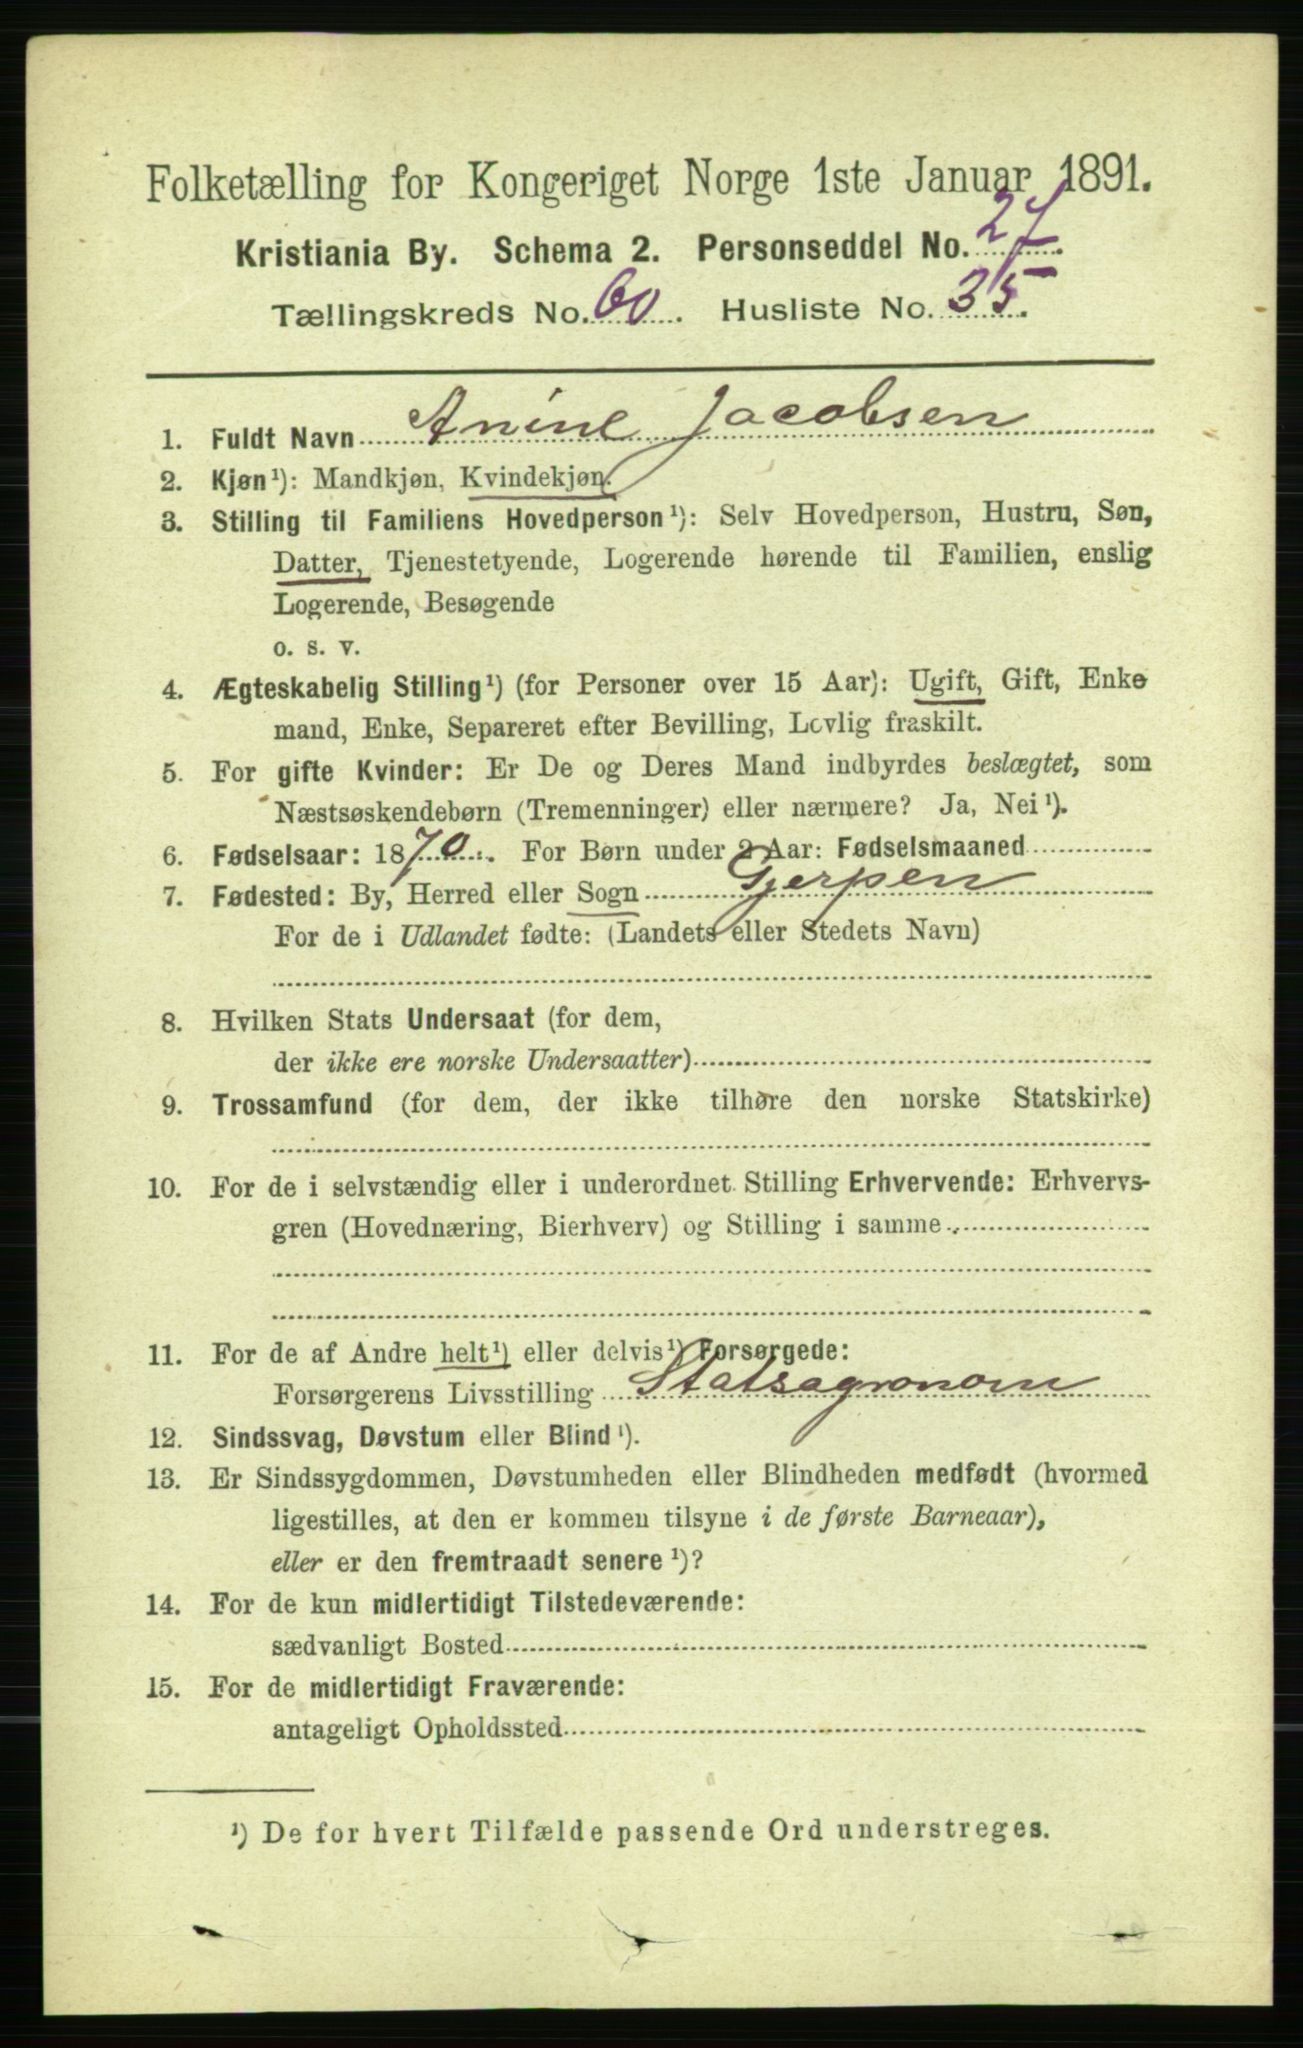 Folketælling for Kongeriget Norge 1ste Januar 1891.
Kristiania By. Schema 2. Personseddel No. 27.
Tællingskreds No. 60. Husliste No. 35.
1. Fuldt Navn Anine Jacobsen
2. Kjøn¹): Mandkjøn, Kvindekjøn.
3. Stilling til Familiens Hovedperson¹): Selv Hovedperson, Hustru, Søn,
Datter, Tjenestetyende, Logerende hørende til Familien, enslig
Logerende, Besøgende
o. s. v.
4. Ægteskabelig Stilling¹) (for Personer over 15 Aar): Ugift, Gift, Enke
mand, Enke, Separeret efter Bevilling, Lovlig fraskilt.
5. For gifte Kvinder: Er De og Deres Mand indbyrdes beslægtet, som
Næstsøskendebørn (Tremenninger) eller nærmere? Ja, Nei¹).
6. Fødselsaar: 1870. For Børn under 2 Aar: Fødselsmaaned
7. Fødested: By, Herred eller Sogn Gjerpen
For de i Udlandet fødte: (Landets eller Stedets Navn)
8. Hvilken Stats Undersaat (for dem,
der ikke ere norske Undersaatter)
9. Trossamfund (for dem, der ikke tilhøre den norske Statskirke)
10. For de i selvstændig eller i underordnet Stilling Erhvervende: Erhvervs-
gren (Hovednæring, Bierhverv) og Stilling i samme
11. For de af Andre helt¹) eller delvis¹) Forsørgede:
Forsørgerens Livsstilling Statsagronom
12. Sindssvag, Døvstum eller Blind¹).
13. Er Sindssygdommen, Døvstumheden eller Blindheden medfødt (hvormed
ligestilles, at den er kommen tilsyne i de første Barneaar),
eller er den fremtraadt senere¹)?
14. For de kun midlertidigt Tilstedeværende:
sædvanligt Bosted
15. For de midlertidigt Fraværende:
antageligt Opholdssted
¹) De for hvert Tilfælde passende Ord understreges.